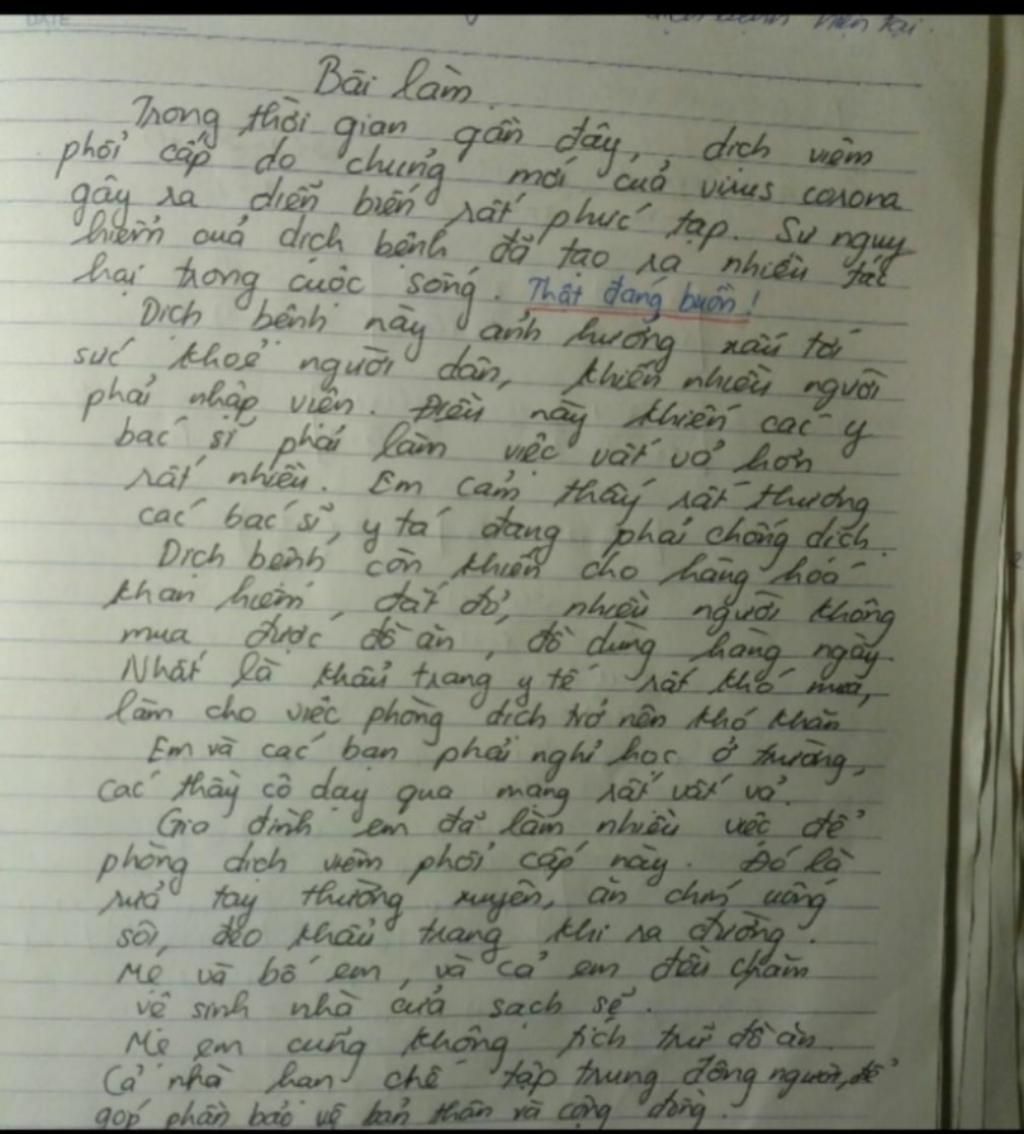 DATE
hiện tại.
Bài làm.
Trong thời gian gần đây, dịch viêm
phổi cấp do chủng mới của virus corona
gây ra diễn biến rất phức tạp. Sự nguy
hiểm của dịch bệnh đã tạo ra nhiều tác
hại trong cuộc sống. Thật đáng buồn!
Dịch bệnh này ảnh hưởng xấu tới
sức khoẻ người dân, khiến nhiều người
phải nhập viện. Điều này khiến các y
bác sĩ phải làm việc vất vả hơn
rất nhiều. Em cảm thấy rất thương
các bác sĩ, y tá đang phải chống dịch.
Dịch bệnh còn khiến cho hàng hoá
khan hiếm, đắt đỏ, nhiều người không
mua được đồ ăn, đồ dùng hàng ngày.
Nhất là khẩu trang y tế rất khó mua,
làm cho việc phòng dịch trở nên khó khăn
Em và các bạn phải nghỉ học ở trường,
các thầy cô dạy qua mạng rất vất vả.
Gia đình em đã làm nhiều việc để
phòng dịch viêm phổi cấp này. Đó là
rửa tay thường xuyên, ăn chín uống
sôi, đeo khẩu trang khi ra đường.
Mẹ và bố em, và cả em đều chăm
vệ sinh nhà cửa sạch sẽ.
Mẹ em cũng không tích trữ đồ ăn.
Cả nhà hạn chế tập trung đông người, để
góp phần bảo vệ bản thân và cộng đồng.